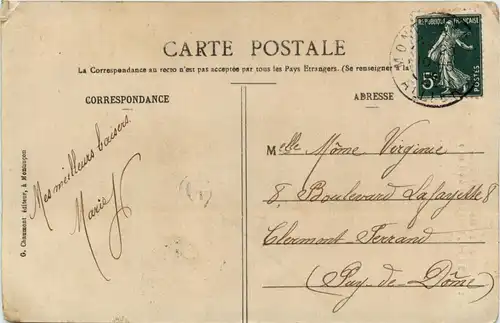 CARTE POSTALE
La Correspondance au recto n'est pas acceptée par tous les Pays Etrangers. (Se renseigner à la
CORRESPONDANCE
ADRESSE
REPUBLIQUE FRANÇAISE
5c
POSTES
Mes meilleurs baisers.
Marie
Melle Môme Virginie
8, Boulevard Lafayette 8
Clermont Ferrand
(Puy-de-Dôme)
G. Chaumont éditeur, à